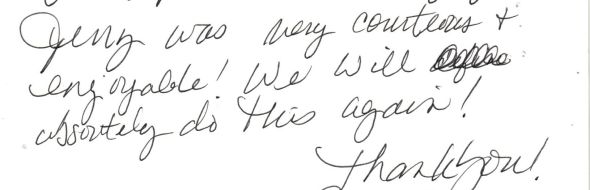 Jerry was very courteous +
enjoyable! We will
absoutely do this again!
Thank you!